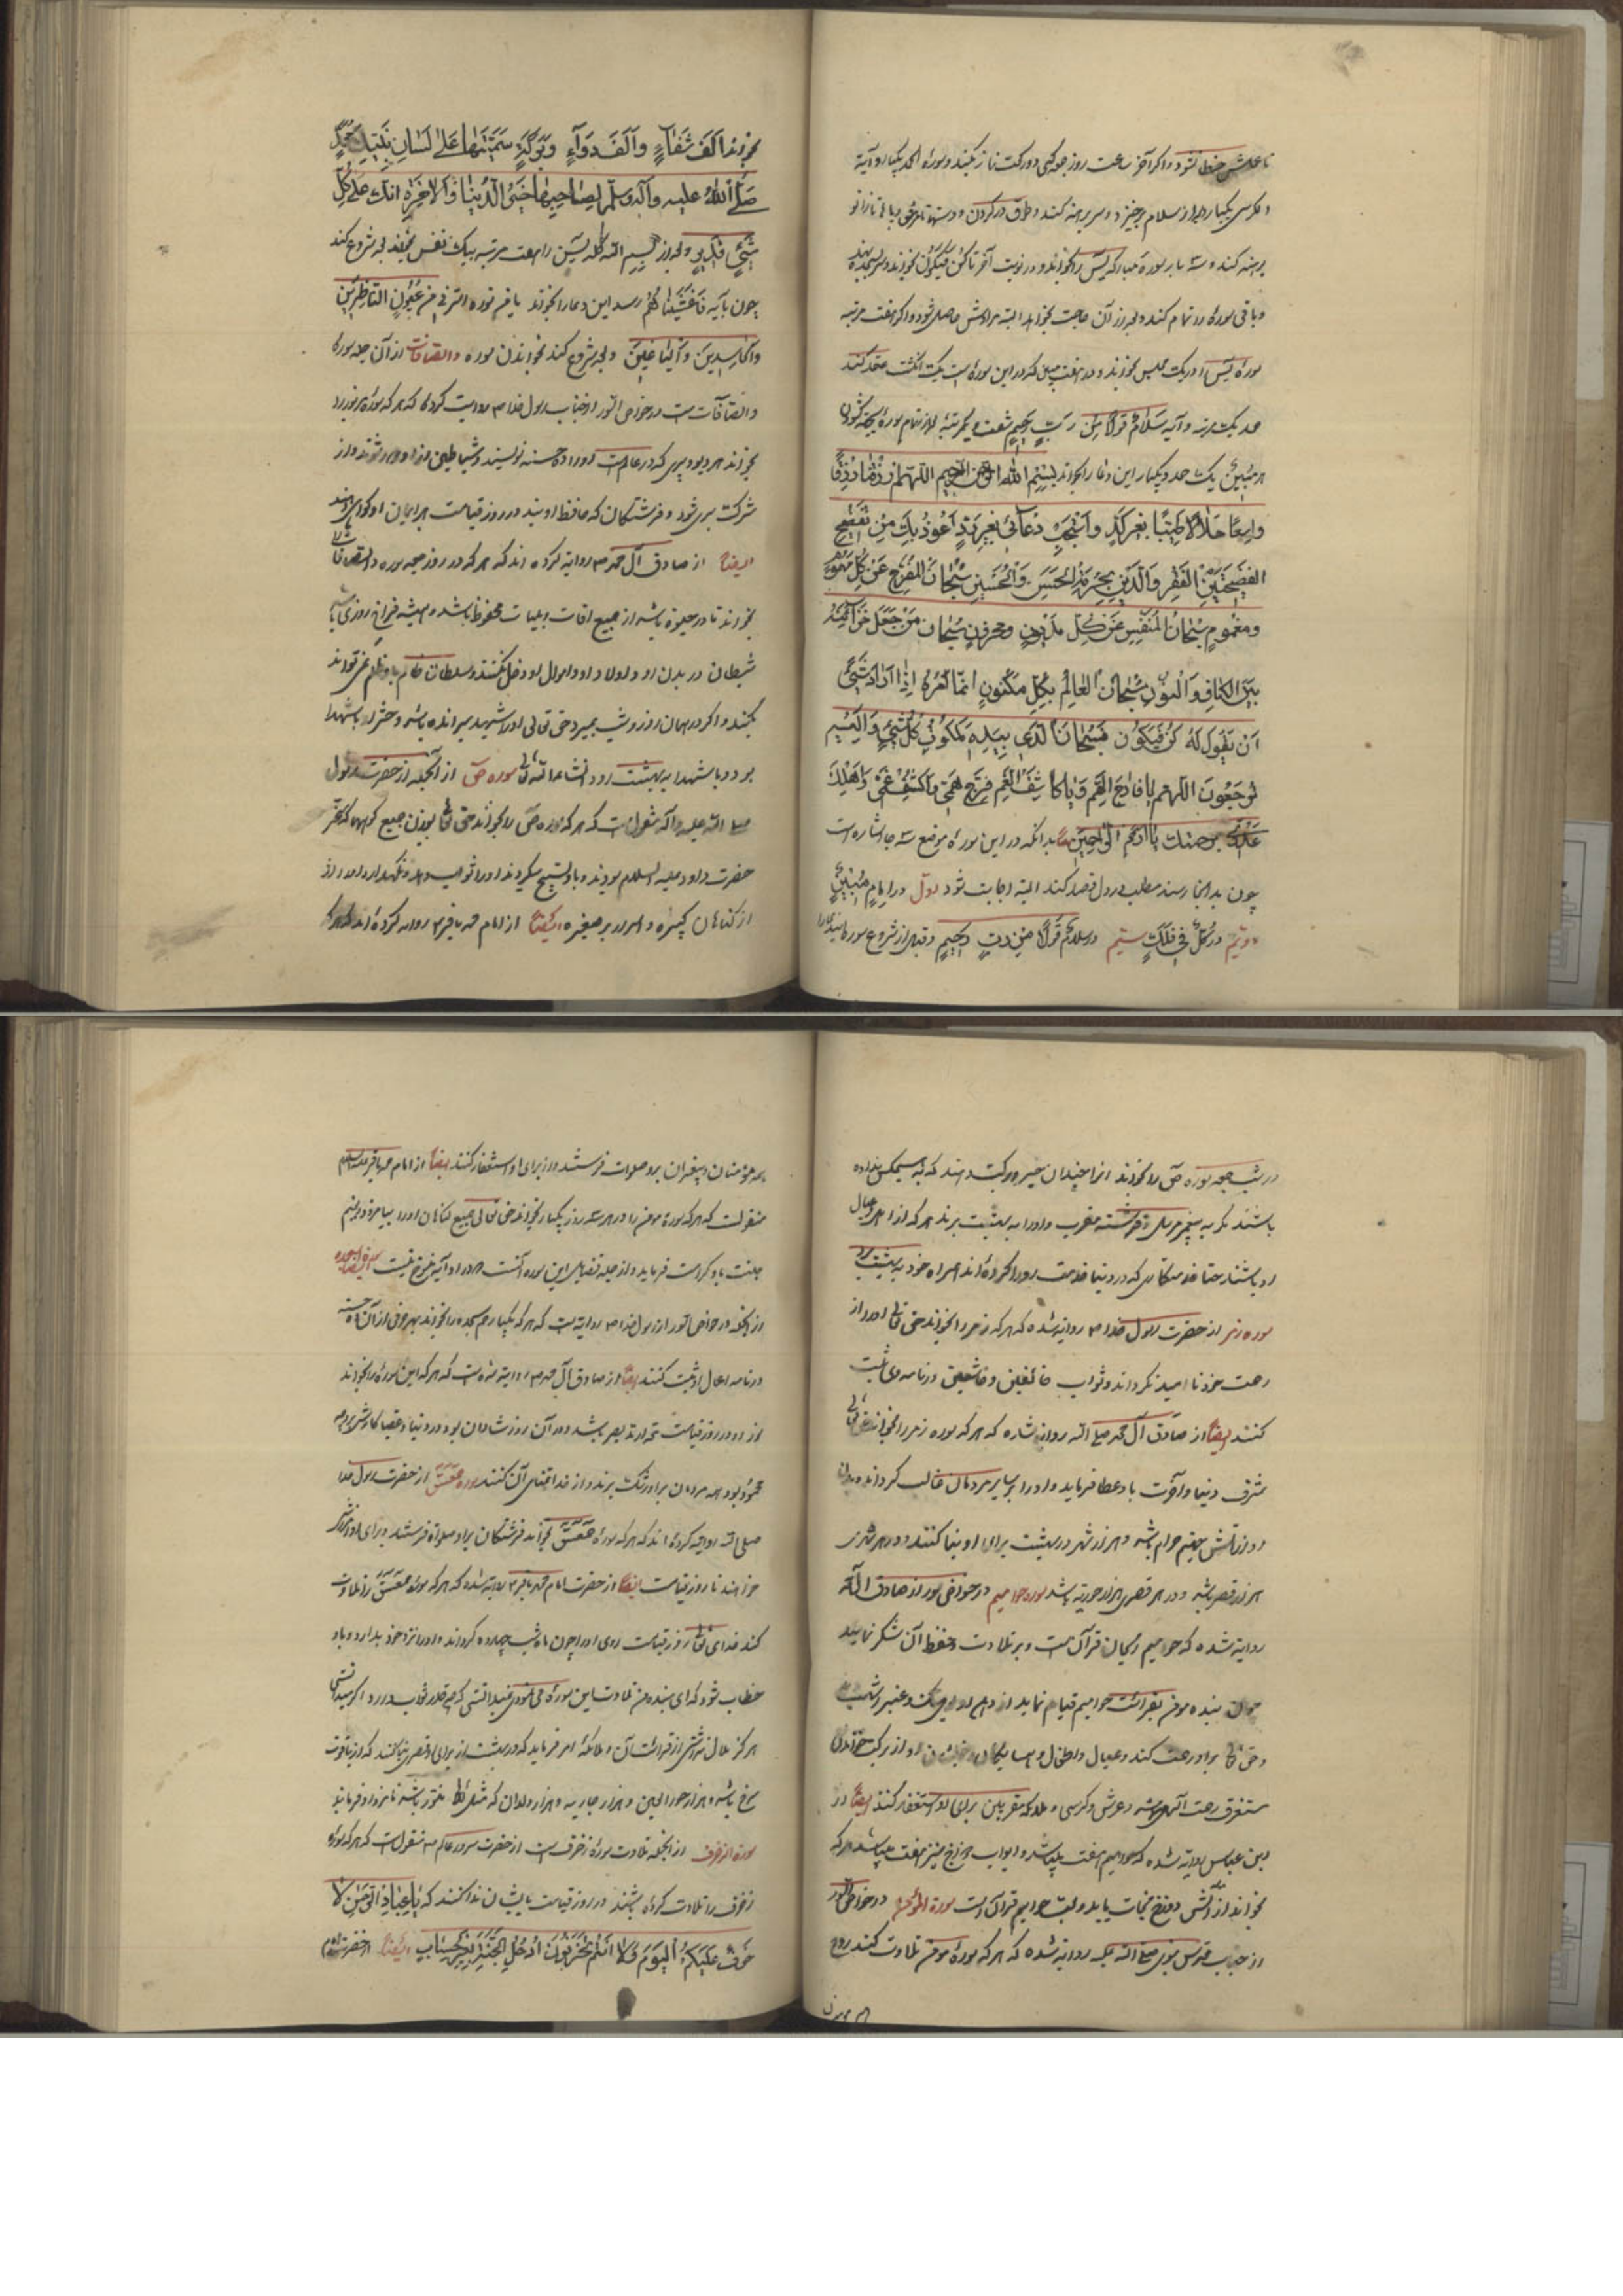 تا عملش خبط نشود و اگر آخر ساعت روز جمعه کسی دو رکعت نماز بکند و سوره الحمد یکبار و آیة
الکرسی یکبار و بعد از سلام برخیزد و سر برهنه کند و طوق در گردن و دستها تا مرفق و پاها تا زانو
برهنه کند و سه بار سوره مبارکه یس را بخواند و در نوبت آخر تا کن فیکون بخواند و سر بسجده نهد
و باقی سوره را تمام کند و بعد از آن حاجت بخواهد البته مرادش حاصل شود و اگر هفت مرتبه
سوره یس را در یک مجلس بخواند و در هفت مبین که در این سوره است یک انگشت عقد کند
حمد یک مرتبه و آیه سَلامٌ قَولاً مِن رَبٍّ رَحیمٍ شصت و یکمرتبه
هر مُبین یک حمد و یکبار این دعا را بخواند بِسْمِ اللهِ الرَّحْمنِ الرَّحیمِ اللّهُمَّ ارْزُقْنا رِزْقاً
واسِعاً حَلالاً طَیِّباً بِغَیرِ کَدٍّ وَاسْتَجِبْ دُعائی بِغَیرِ رَدٍّ اَعُوذُ بِکَ مِنْ
الفَضیحَتَینِ الفَقْرِ وَالدَّینِ بِحُرمَةِ الحَسَنِ وَالحُسَینِ سُبْحانَ المُفَرِّجِ عَنْ کُلِّ مَهْمُومٍ
وَمَغْمُومٍ سُبْحانَ المُنَفِّسِ عَنْ کُلِّ مَدْیُونٍ وَمَحْزُونٍ سُبْحانَ مَنْ جَعَلَ خَزائِنَهُ
بَیْنَ الکافِ وَالنُّونِ سُبْحانَ العالِمِ بِکُلِّ مَکْنُونٍ اِنَّما اَمْرُهُ اِذا اَرادَ شَیْئاً
اَنْ یَقُولَ لَهُ کُنْ فَیَکُونُ فَسُبْحانَ الَّذی بِیَدِهِ مَلَکُوتُ کُلِّ شَیْءٍ وَاِلَیْهِ
تُرْجَعُونَ اللّهُمَّ یا فارِجَ الهَمِّ وَیا کاشِفَ الغَمِّ فَرِّجْ هَمّی وَاکْشِفْ غَمّی وَاَهْلِکْ
عَدُوّی بِرَحْمَتِکَ یا اَرْحَمَ الرّاحِمینَ بدانکه در این سوره موضع سه جا اشاره است
چون بدانجا رسند مطلب در دل قصد کنند البته اجابت شود اول در اِمامٍ مُبینٍ
دویّم در کُلٌّ فی فَلَکٍ سیّم در سَلامٌ قَوْلاً مِنْ رَبٍّ رَحیمٍ و قبل از شروع سوره
بخواند اَلْفَ شِفاءٍ وَاَلْفَ دَواءٍ وَبَرَکَةٍ سَمَّیْتَها عَلی لِسانِ نَبِیِّکَ مُحَمَّدٍ
صَلَّی اللهُ عَلیهِ وَآلِهِ وَسَلَّمَ لِصاحِبِها خَیْرَ الدُّنْیا وَالآخِرَةِ اِنَّکَ عَلی کُلِّ
شَیْءٍ قَدیرٍ و بعد از بسم الله کلمه یس را هفت مرتبه بیک نفس بخواند بعد شروع کند
چون بآیه فَاَغْشَیْناهُمْ رسد این دعا را بخواند عُیُونِ النّاظِرینَ
وَالحاسِدینَ وَالباغینَ و بعد شروع کند بخواندن سوره والصافات از آن جمله سوره
والصافات است در خواص القور از جناب رسول خدا ص روایت کرده که هر که سوره مزبور را
بخواند هر دیو و پری که در عالم است او را ده حسنه نویسند و شیاطین از او دور شوند و از
شرکت بری شود و فرشتگان که حافظ اویند در روز قیامت بر ایمان او گواهی دهند
ایضا از صادق آل محمد ص روایة کرده اند که هر که در روز جمعه سوره والصافات
بخواند تا در حیوة باشد از جمیع افات و بلیات محفوظ باشد و همیشه فراخ روزی باشد
شیطان در بدن او و اولاد او و اموال او دخل نکند و سلطان ظالم باو ظلم نمی تواند
بکند و اگر در همان روز و شب بمیرد حق تعالی او را شهید میراند و حشر او با شهدا
بود و با شهدا به بهشت رود انشاء الله تعالی سوره ص از آنجمله از حضرت رسول
صلی الله علیه و اله منقول است که هر که سوره ص را بخواند حق تعالی بوزن جمیع کوهها که مسخر
حضرت داود علیه السلام بودند و با او تسبیح میکردند او را ثواب دهد و نگهدارد او را از
از گناهان کبیره و اصرار بر صغیره ایضا از امام محمد باقر ع روایه کرده اند که هر که
در شب جمعه سوره ص را بخواند او را چندان خیر و برکت دهند که به هیچکس نداده
باشند مگر به پیغمبر مرسل و فرشته مقرب و او را به بهشت برند هر که از اهل و عیال
او باشند حتا خدمتکاری که در دنیا خدمت او را کرده اند همراه خود به بهشت برد
سوره زمر از حضرت رسول خدا ص روایة شده که هر که زمر را بخواند حق تعالی او را از
رحمت خود ناامید نگرداند و ثواب خائفین و خاشعین در نامه وی ثبت
کنند ایضا از صادق آل محمد صلی الله روایة شده که هر که سوره زمر را بخواند حق تعالی
شرف دنیا و آخرت باو عطا فرماید و او را بر سایر مردمان غالب گرداند و بدن
او از آتش جهنم حرام باشد و هزار شهر در بهشت برای او بنا کنند و در هر شهری
هزار قصر باشد و در هر قصری هزار حوریه باشد سوره حوامیم در خواص القور از صادق آل محمد
روایة شده که حوامیم ریحان قرآن است و بر تلاوت و حفظ آن شکر نمایند
چون بنده مومن بقرائت حوامیم قیام نماید از دهن او بوی مشک و عنبر
و حق تعالی بر او رحمت کند و عیال و اطفال و همسایگان او از برکت خواندن
مستغرق رحمت آلهی باشند و عرش و کرسی و ملائکه مقربین برای او استغفار کنند ایضا از
ابن عباس روایة شده که حوامیم هفت بلیه باشد و ابواب دوزخ نیز هفت باشد هر که
بخواند از آتش دوزخ نجات یابد و لب حوامیم قرآن است سورة المؤمن در خواص القور
از جناب مقدس نبوی صلی الله علیه روایة شده که هر که سوره مومن تلاوت کند روح
همه مومنان و پیغمبران برو صلوات فرستند و از برای او استغفار کنند ایضا از امام محمد باقر علیه السلام
منقولست که هر که سوره مومن را در هر سه روز یکبار بخواند حق تعالی جمیع گناهان او را بیامرزد و نعیم
جنت باو کرامت فرماید و از جمله فضایل این سوره آنست که در او آیه منسوخ نیست
از آنجمله در خواص القور از رسول خدا ص روایة است که هر که یکبار حم سجده را بخواند بهر حرفی از آن ده حسنه
در نامه اعمال او ثبت کنند ایضا از صادق آل محمد ص روایة شده است که هر که این سوره را بخواند
نور او در روز قیامت بقدر مد بصر باشد و در آن روز شادمان بود و در دنیا و عقبا
محمود بود و همه مردمان بر او رشک برند و از خدا تمنای آن کنند سوره حمعسق از حضرت رسول خدا
صلی الله روایة کرده اند که هر که سوره حمعسق بخواند فرشتگان بر او صلواة فرستند و برای او آمرزش
خواهند تا روز قیامت ایضا از حضرت امام محمد باقر ع روایة شده که هر که سوره حمعسق را تلاوت
کند خدای تعالی روز قیامت روی او را چون ماه شب چهارده گرداند و او را نزد خود بدارد و باو
خطاب شود که ای بنده من تلاوت این سوره می نمودی نمیدانستی که چه قدر ثواب دارد و اگر میدانستی
هرگز ملال نداشتی از قرائت آن و ملائکه امر فرماید که در بهشت از برای او قصری بنا کنند که از یاقوت
سرخ باشد و هزار حور العین و هزار جاریه و هزار ولدان که مثل
سورة الزخرف از آنجمله تلاوت سوره زخرف است از حضرت سرور عالم ص منقول است که هر که سوره
زخرف را تلاوت کرده باشند در روز قیامت بایشان ندا کنند که یا عِبادِ الرَّحْمنِ لا
خَوْفٌ عَلَیْکُمُ الْیَوْمَ وَلا اَنْتُمْ تَحْزَنُونَ اُدْخُلِ الْجَنَّةَ بِغَیْرِ حِسابٍ ایضا از حضرت